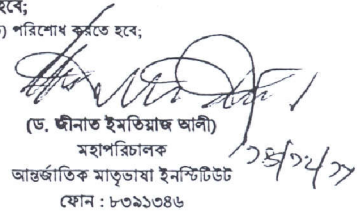 হবে;
) পরিশোধ করতে হবে;
(ড. জীনাত ইমতিয়াজ আলী)
মহাপরিচালক
আন্তর্জাতিক মাতৃভাষা ইনস্টিটিউট
ফোন : ৮৩৯১৩৪৬